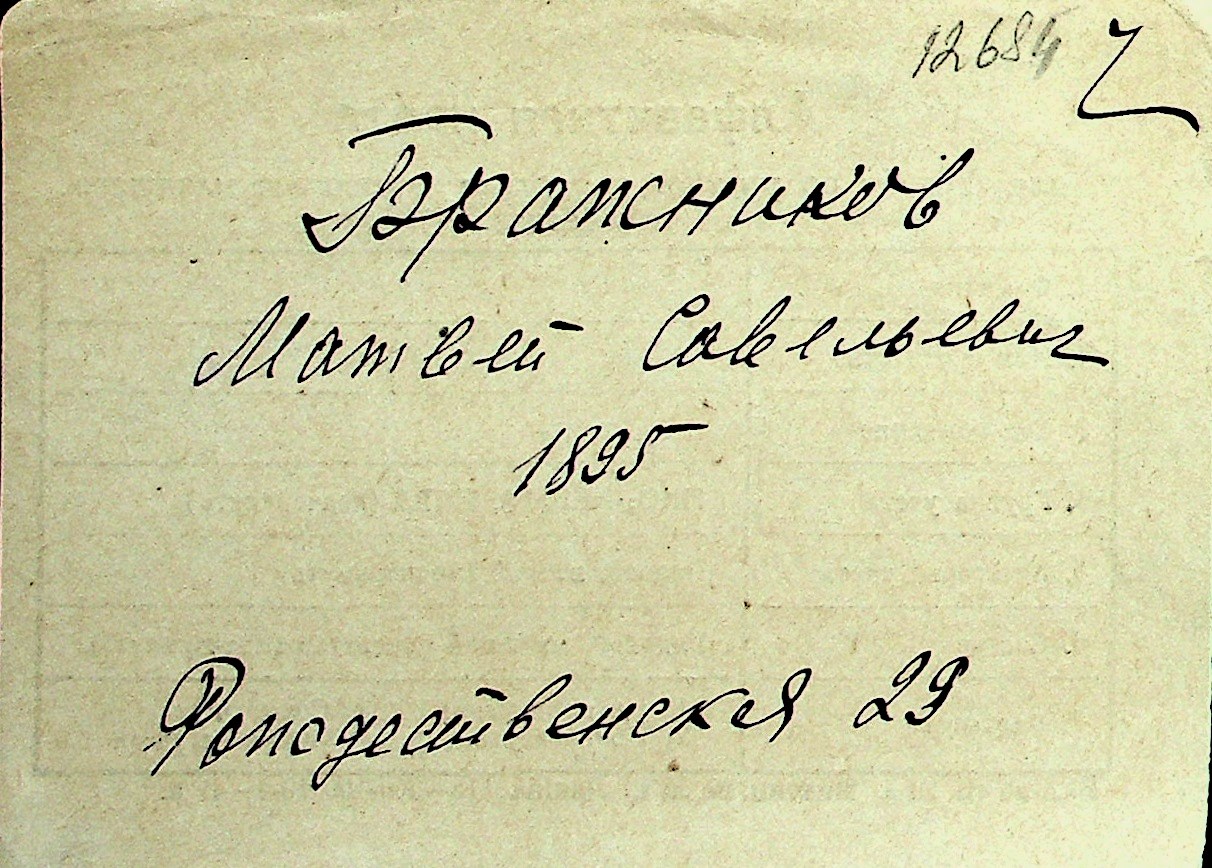 12684 Ч
Бражников
Матвей Савельевич
1895
Рождественская 29